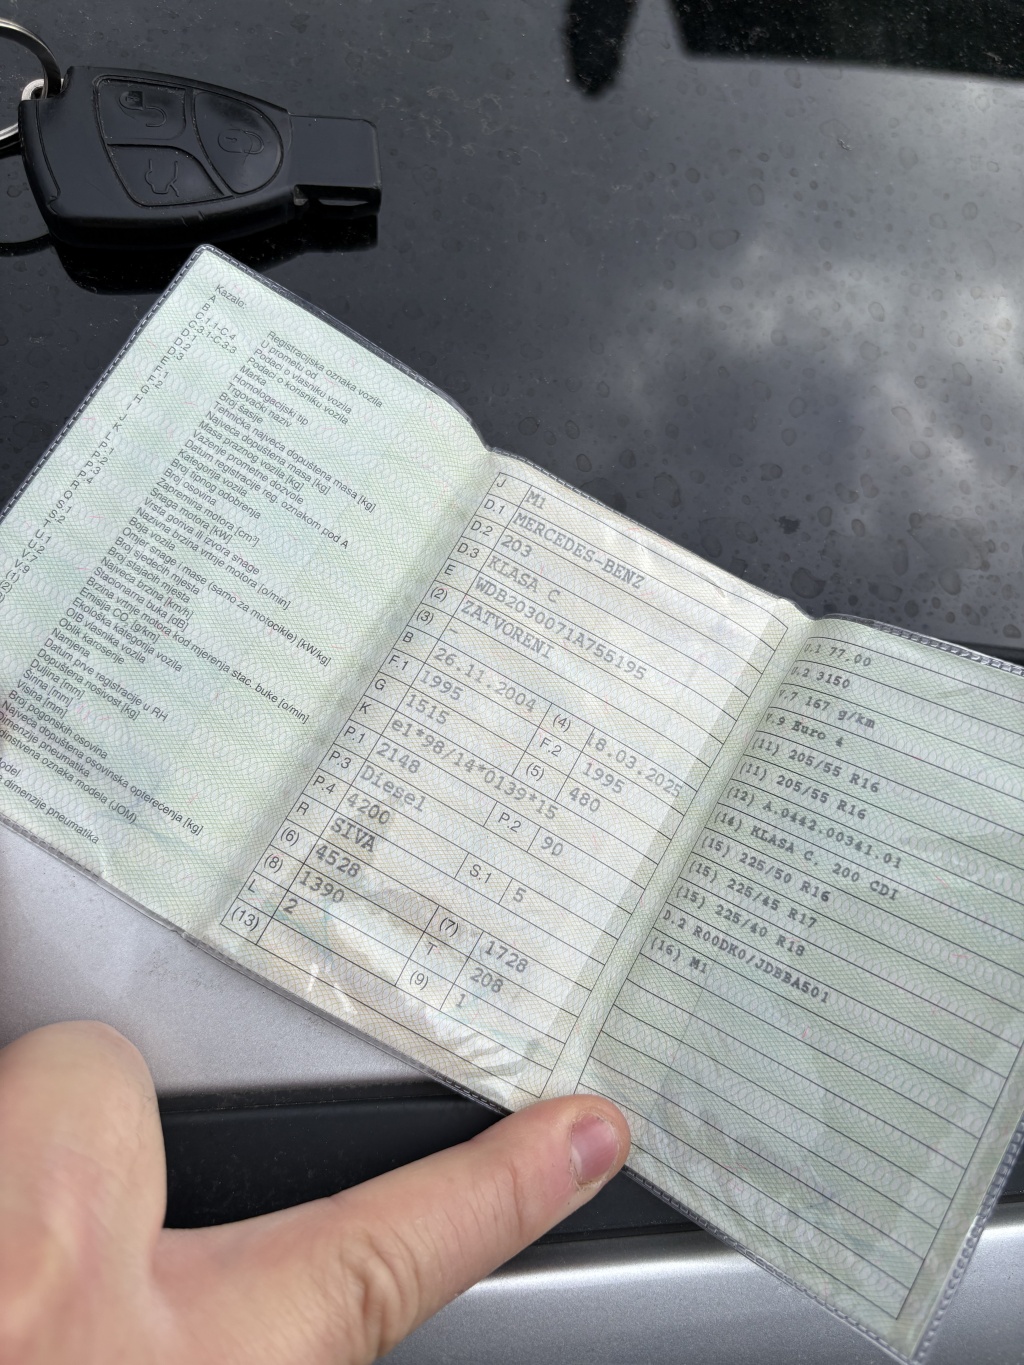 Kazalo:
A Registracijska oznaka vozila
B U prometu od
C.1.1-C.4 Podaci o vlasniku vozila
C.3.1-C.3.3 Podaci o korisniku vozila
Marka
Homologacijski tip
Trgovački naziv
Broj šasije
Tehnička najveća dopuštena masa [kg]
Najveća dopuštena masa [kg]
Masa praznog vozila [kg]
Važenje prometne dozvole
Datum registracije reg. oznakom pod A
Kategorija vozila
Broj tipnog odobrenja
Broj osovina
Zapremina motora [cm³]
Snaga motora [kW]
Vrsta goriva ili izvora snage
Nazivna brzina vrtnje motora [o/min]
Boja vozila
Omjer snage i mase (samo za motocikle) [kW/kg]
Broj sjedećih mjesta
Broj stajaćih mjesta
Najveća brzina [km/h]
Stacionarna buka [dB]
Brzina vrtnje motora kod mjerenja stac. buke [o/min]
Emisija CO₂ [g/km]
Ekološka kategorija vozila
OIB vlasnika vozila
Oblik karoserije
Namjena
Datum prve registracije u RH
Dopuštena nosivost [kg]
Duljina [mm]
Širina [mm]
Visina [mm]
Broj pogonskih osovina
Najveća dopuštena osovinska opterećenja [kg]
Dimenzije pneumatika
oznaka modela (JOM)
dimenzije pneumatika
J M1
D.1 MERCEDES-BENZ
D.2 203
D.3 KLASA C
E WDB2030071A755195
(2) ZATVORENI
(3) –
B 26.11.2004 (4) 18.03.2025
F.1 1995 F.2 1995
G 1515 (5) 480
K e1*98/14*0139*15
P.1 2148 P.2 90
P.3 Diesel
P.4 4200
R SIVA S.1 5
(6) 4528
(8) 1390 (7) 1728
L 2 T 208
(13) (9) 1
77,00
3150
167 g/km
Euro 4
(11) 205/55 R16
(11) 205/55 R16
(12) A.0442.00341.01
(14) KLASA C, 200 CDI
(15) 225/50 R16
(15) 225/45 R17
(15) 225/40 R18
D.2 R00DK0/JDBBA501
(16) M1